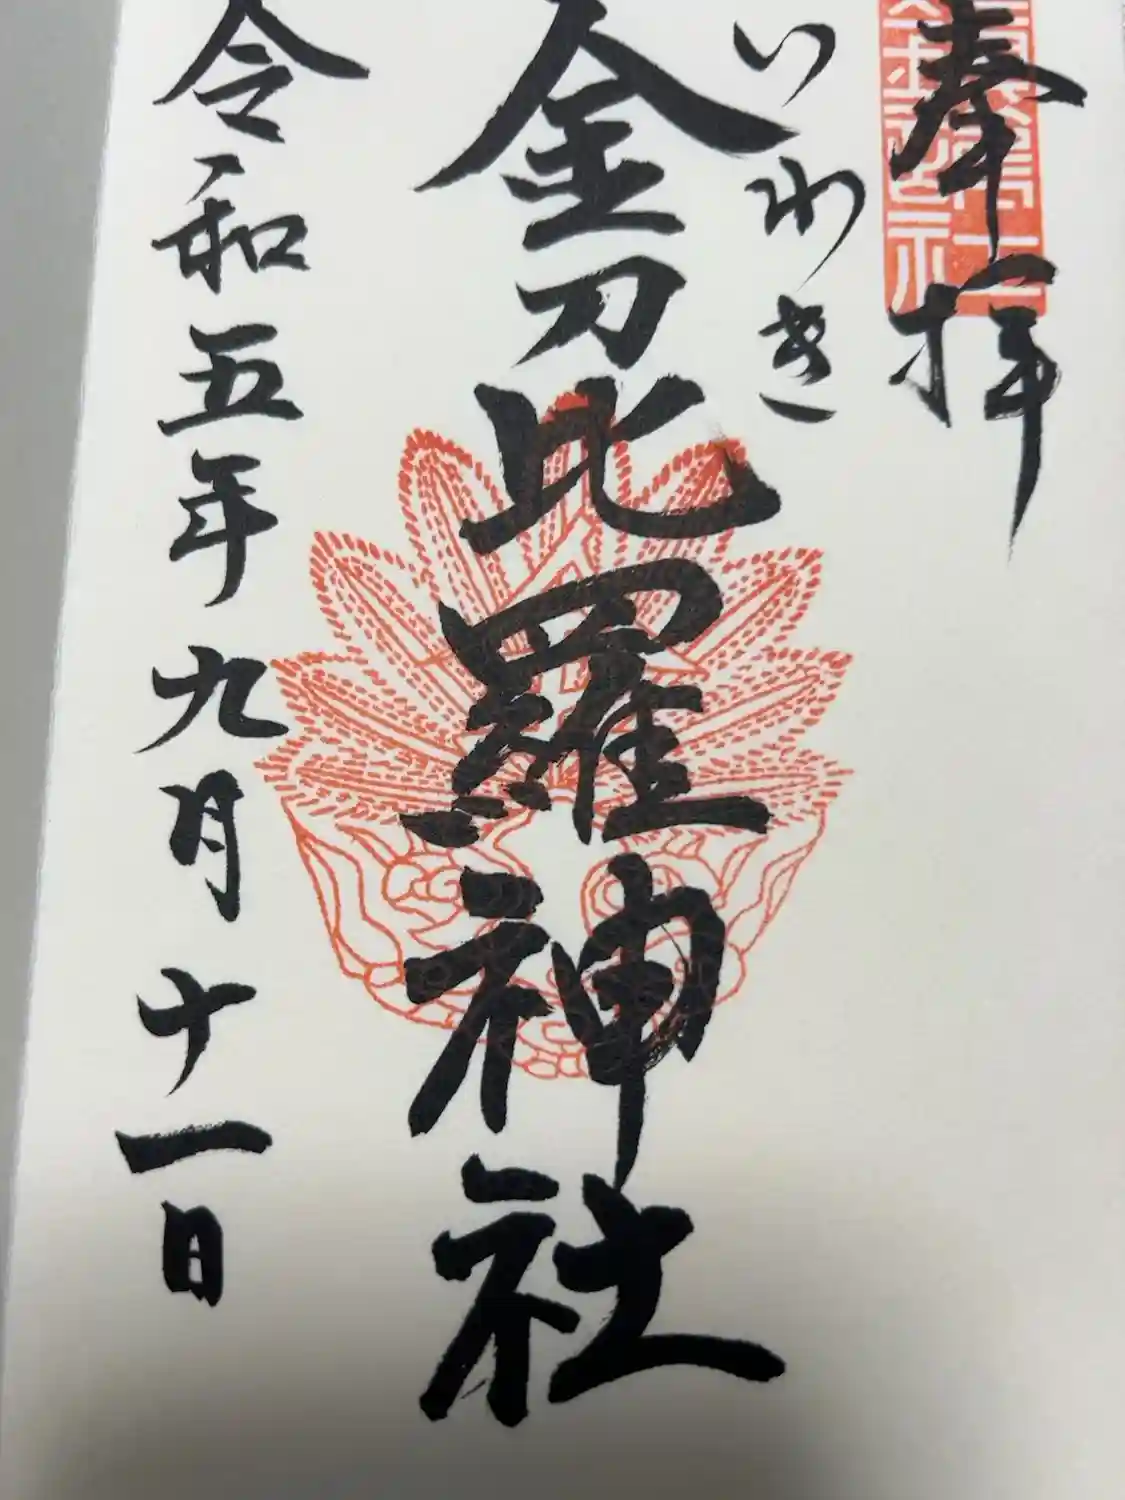 奉拝
いわき
金刀比羅神社
令和五年九月十一日